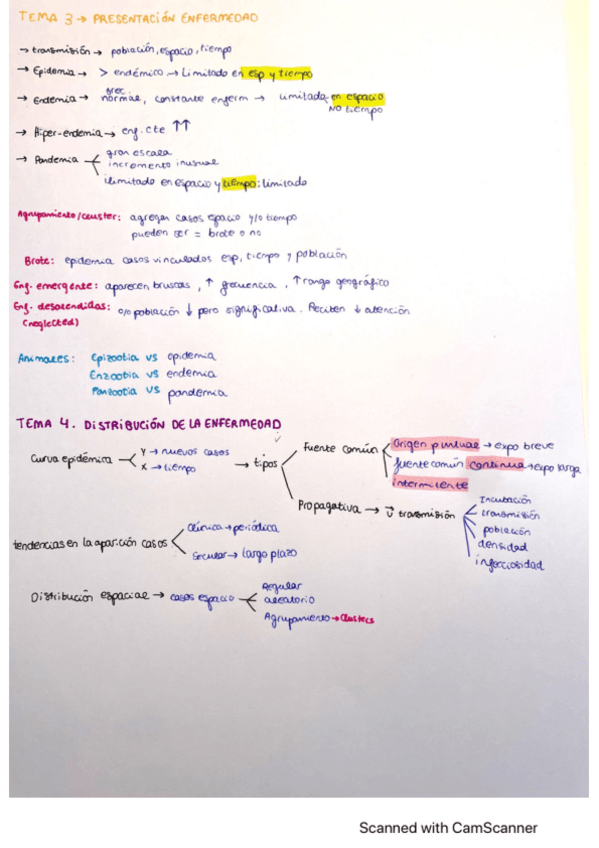 TEMA 3 → PRESENTACIÓN ENFERMEDAD
→ transmisión → población, espacio, tiempo
→ Epidemia → > endémico → Limitado en esp y tiempo
→ Endemia → frec. normal, constante enferm → limitada en espacio
NO tiempo
→ Hiper-endemia → enf. cte ↑↑
→ Pandemia
gran escala
incremento inusual
ilimitado en espacio y tiempo: limitado
Agrupamiento/cluster: agregan casos espacio y/o tiempo
pueden ser = brote o no
Brote: epidemia casos vinculados esp, tiempo y población
Enf. emergente: aparecen bruscas, ↑ frecuencia, ↑ rango geográfico
Enf. desatendidas: población ↓ pero significativa. Reciben ↓ atención
(neglected)
Animales: Epizootia VS epidemia
Enzootia VS endemia
Panzootia VS pandemia
TEMA 4. DISTRIBUCIÓN DE LA ENFERMEDAD
Curva epidémica
Y → nuevos casos
X → tiempo
→ tipos
Fuente común
Origen puntual → expo breve
fuente común continua → expo larga
intermitente
Propagativa → transmisión
Incubación
transmisión
población
densidad
infecciosidad
tendencias en la aparición casos
Cíclica → periódica
Secular → largo plazo
Distribución espacial → casos espacio
Regular
aleatorio
Agrupamiento → Clusters
Scanned with CamScanner